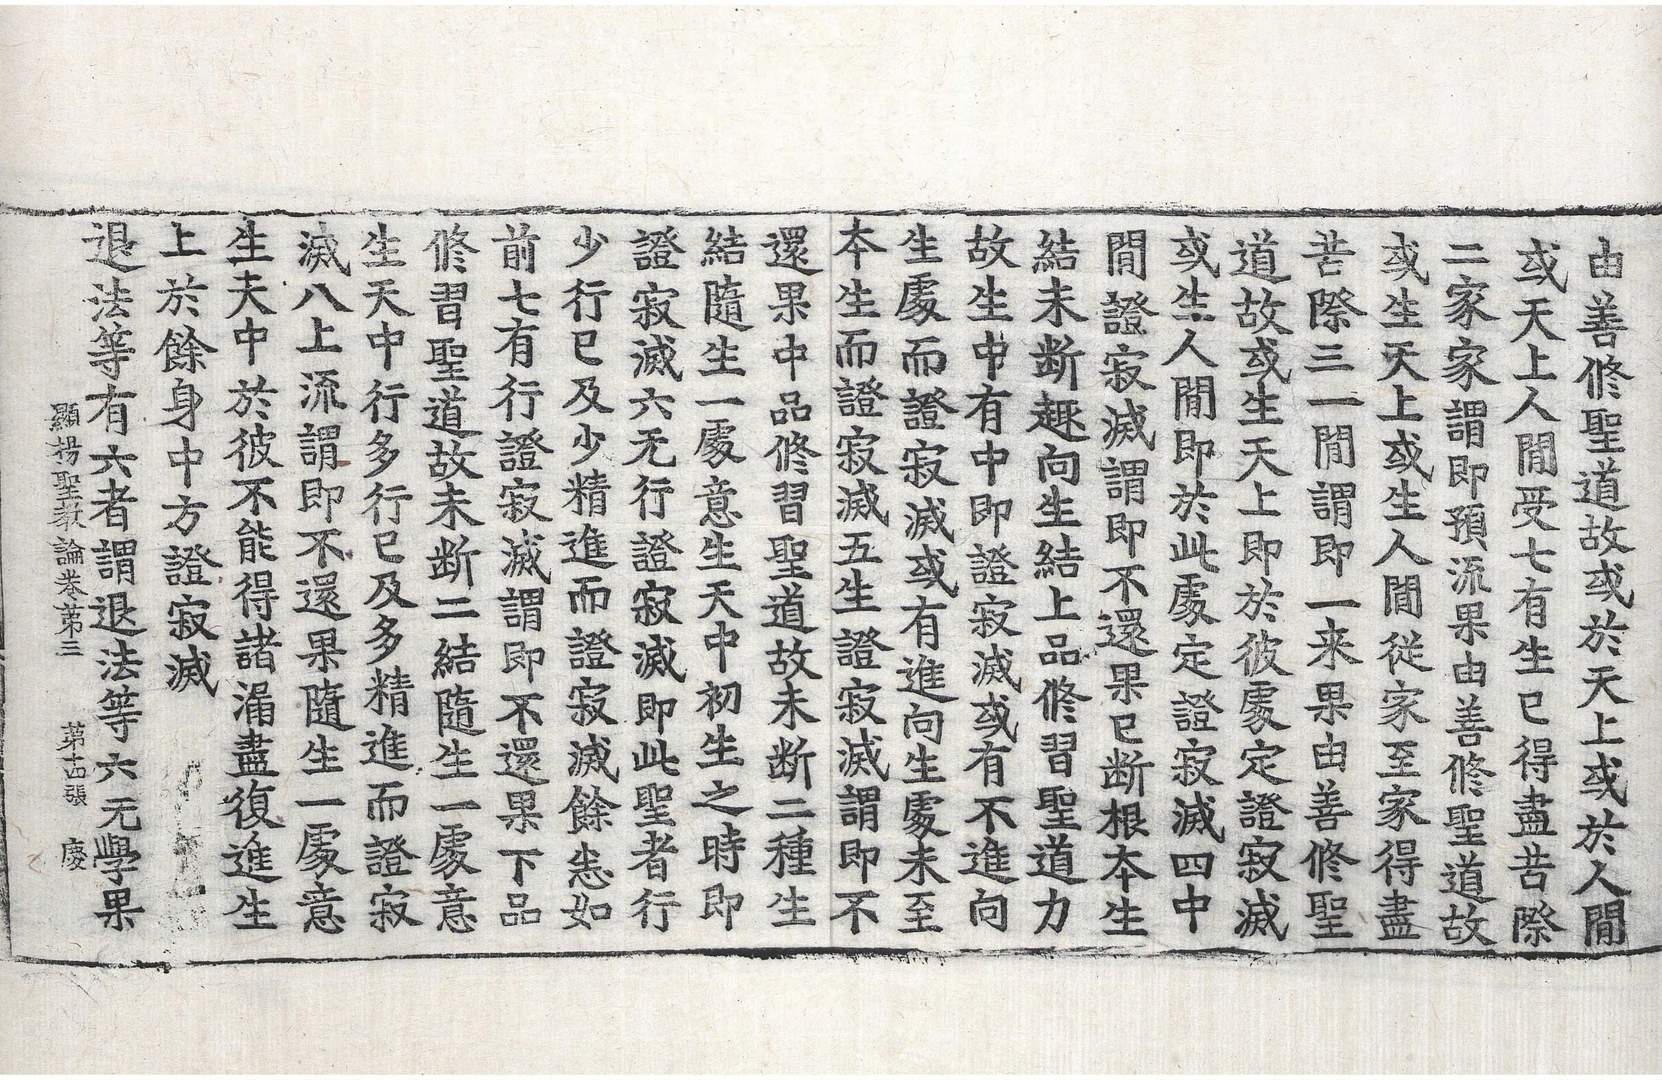 由善修聖道故或於天上或於人間
或天上人間受七有生已得盡苦際
二家家謂即預流果由善修聖道故
或生天上或生人間從家至家得盡
苦際三一間謂即一来果由善修聖
道故或生天上即於彼處定證寂滅
或生人間即於此處定證寂滅四中
間證寂滅謂即不還果已斷根本生
結未斷趣向生結上品修習聖道力
故生中有中即證寂滅或有不進向
生處而證寂滅或有進向生處未至
本生而證寂滅五生證寂滅謂即不
還果中品修習聖道故未斷二種生
結隨生一處意生天中初生之時即
證寂滅六无行證寂滅即此聖者行
少行已及少精進而證寂滅餘悉如
前七有行證寂滅謂即不還果下品
修習聖道故未斷二結隨生一處意
生天中行多行已及多精進而證寂
滅八上流謂即不還果隨生一處意
生天中於彼不能得諸漏盡復進生
上於餘身中方證寂滅
退法等有六者謂退法等六无學果
顯揚聖教論卷第三 第十四張 慶